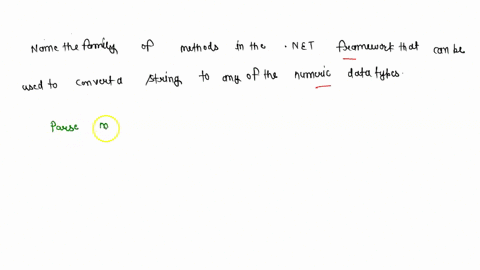 Name the family of methods in the .NET framework that can be
used to convert a string to any of the numeric data types.
Parse m